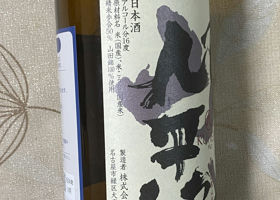 日本酒
アルコール分16度
原材料名 米(国産)、米こうじ(国産米)
精米歩合50%
山田錦100%使用
九平次
製造者 株式会
名古屋市緑区大